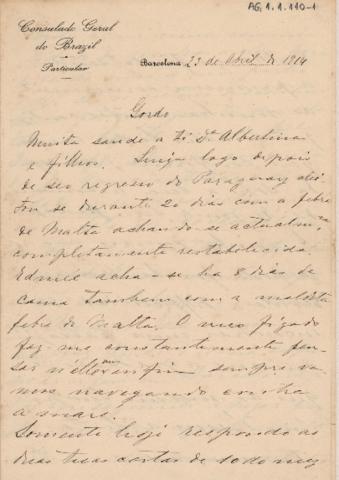 AG.1.1.110-1
Consulado Geral
do Brazil
Particular
Barcelona, 23 de Abril de 1914
Gordo
Muita saude a ti Da Albertina
e filhos. logo depois
de seu regresso do Paraguay
se durante 20 dias com a febre
de Malta achando se actualmte
completamente restabelecida.
Edmée acha-se ha 8 dias de
cama tambem com a maldita
febre de Malta. O meu figado
faz-me constantemente pen-
sar enfim sempre va
mos navegando contra
a maré.
Somente hoje respondo as
duas tuas cartas de 10 do mez